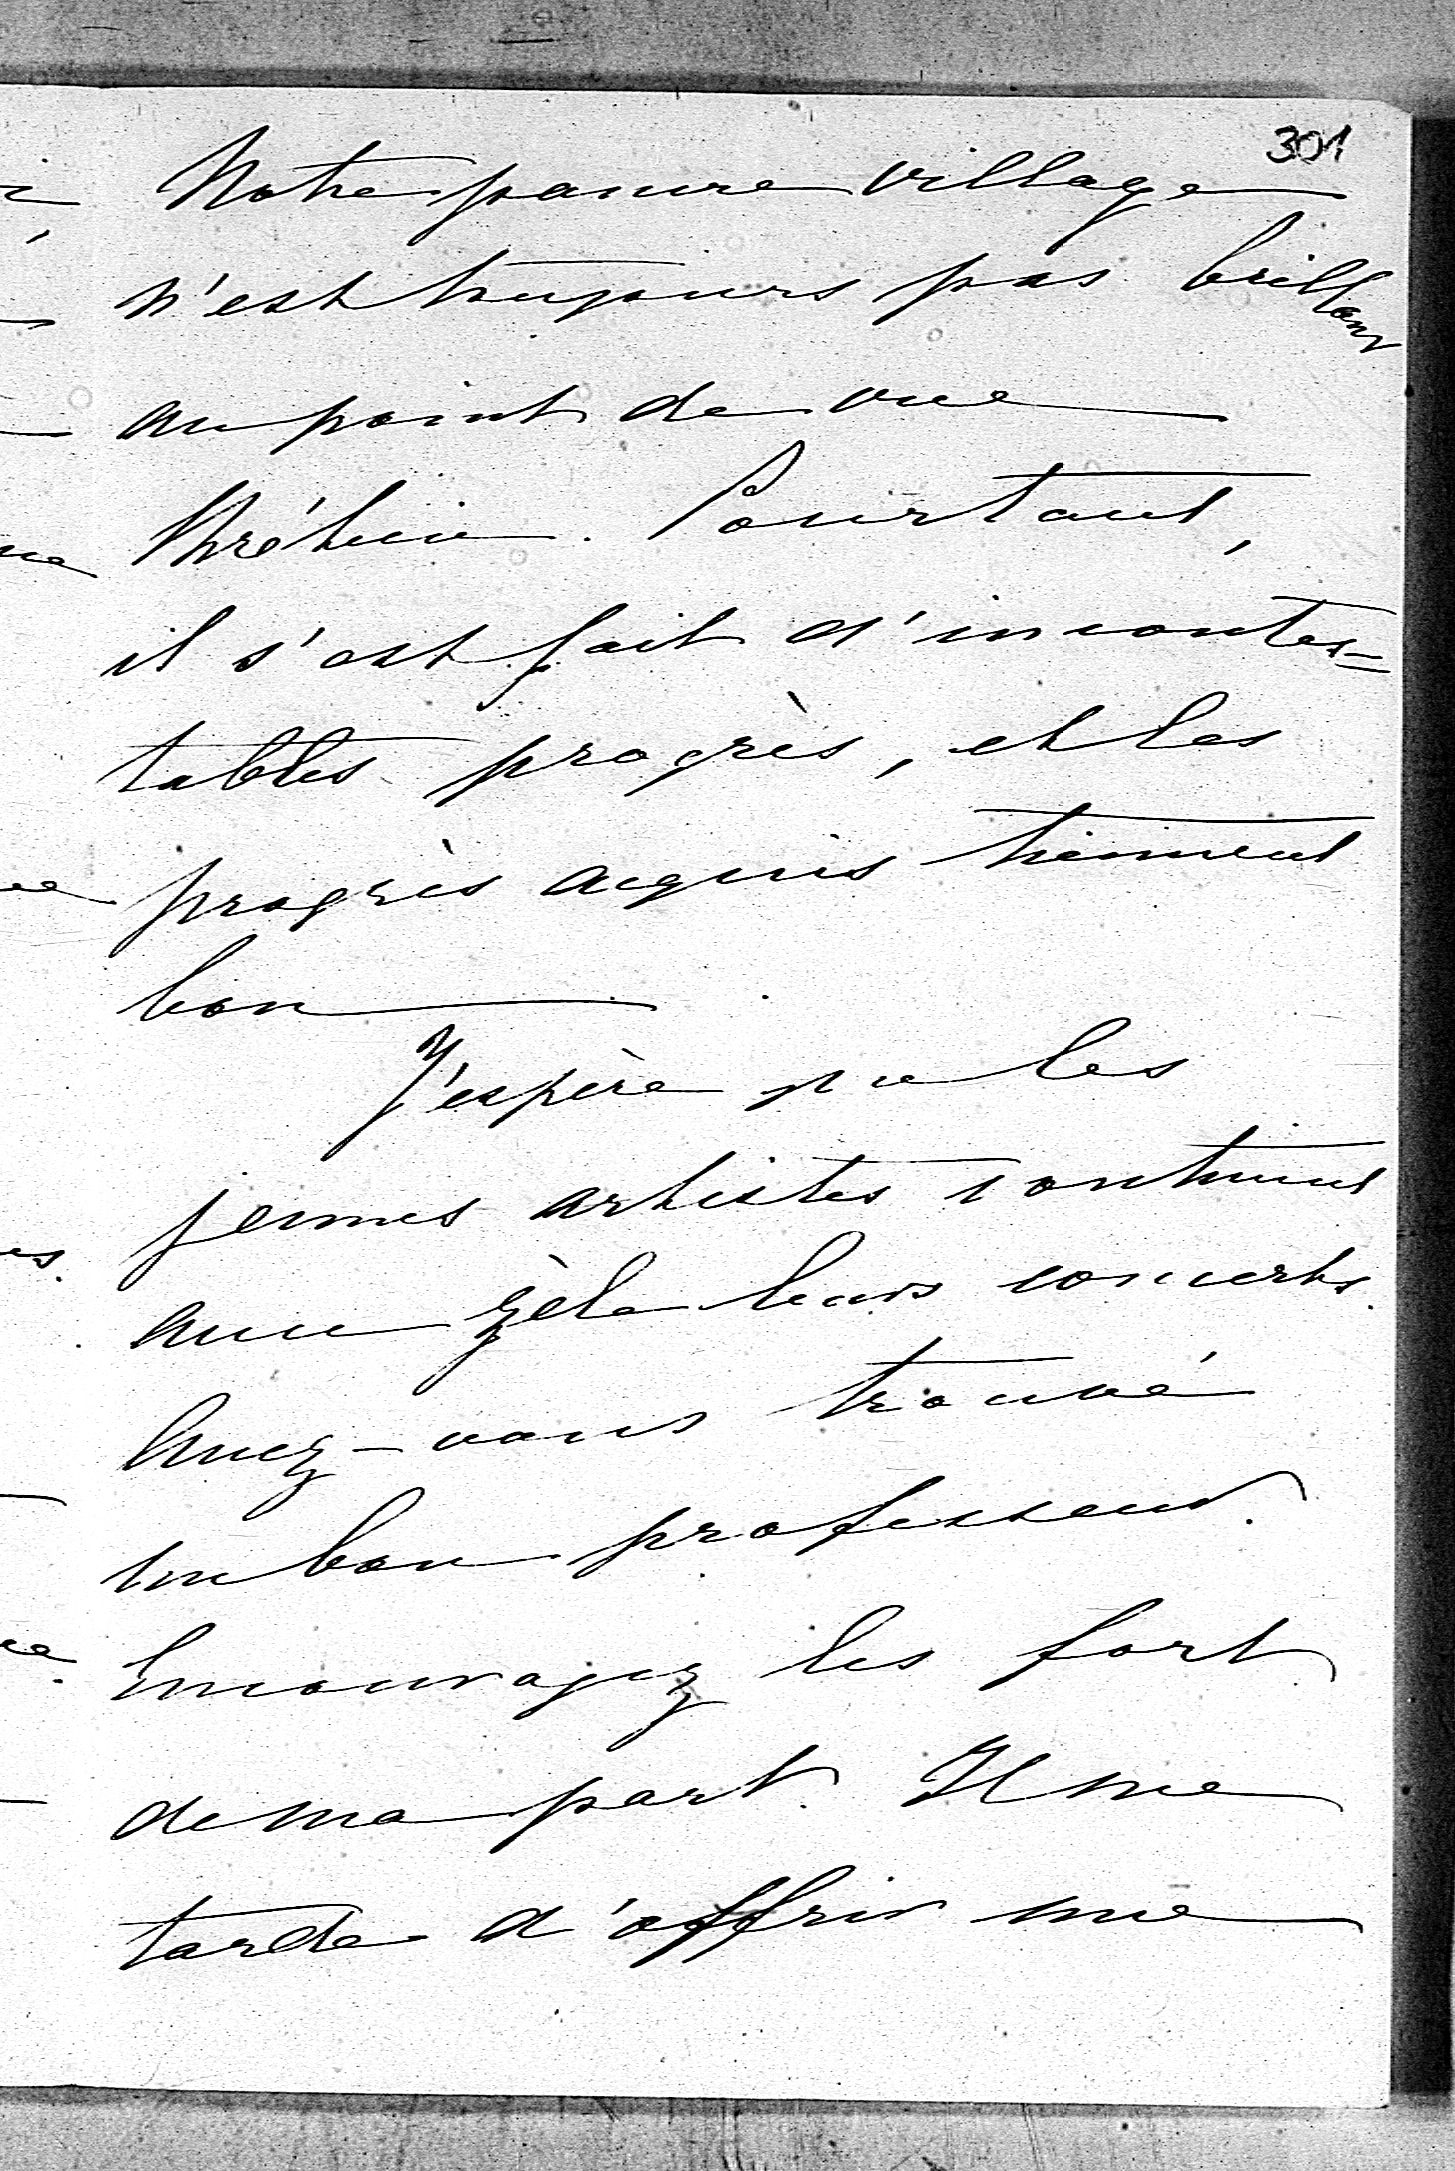 301
Notre pauvre village
n'est toujours pas brillant
au point de vue
chrétien. Pourtant,
il s'est fait d'incontes=
tables progrès, et les
progrès acquis tiennent
bon.
J'espère que les
jeunes artistes continuent
avec zèle leurs concerts.
Avez-vous trouvé
un bon professeur.
Encouragez les fort
de ma part. Il me
tarde d'offrir une